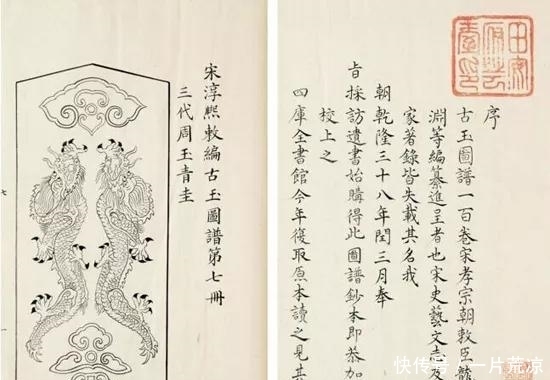 序
古玉圖譜一百卷宋孝宗朝敕臣龍
淵等編纂進呈者也宋史藝文志及
家著錄皆失載其名我
朝乾隆三十八年閏三月奉
旨採訪遺書始購得此圖譜鈔本即恭加
校上之
四庫全書館今年復取原本讀之見其
宋淳熙敕編古玉圖譜第七冊
三代周玉青圭
七
快传号/一片荒凉